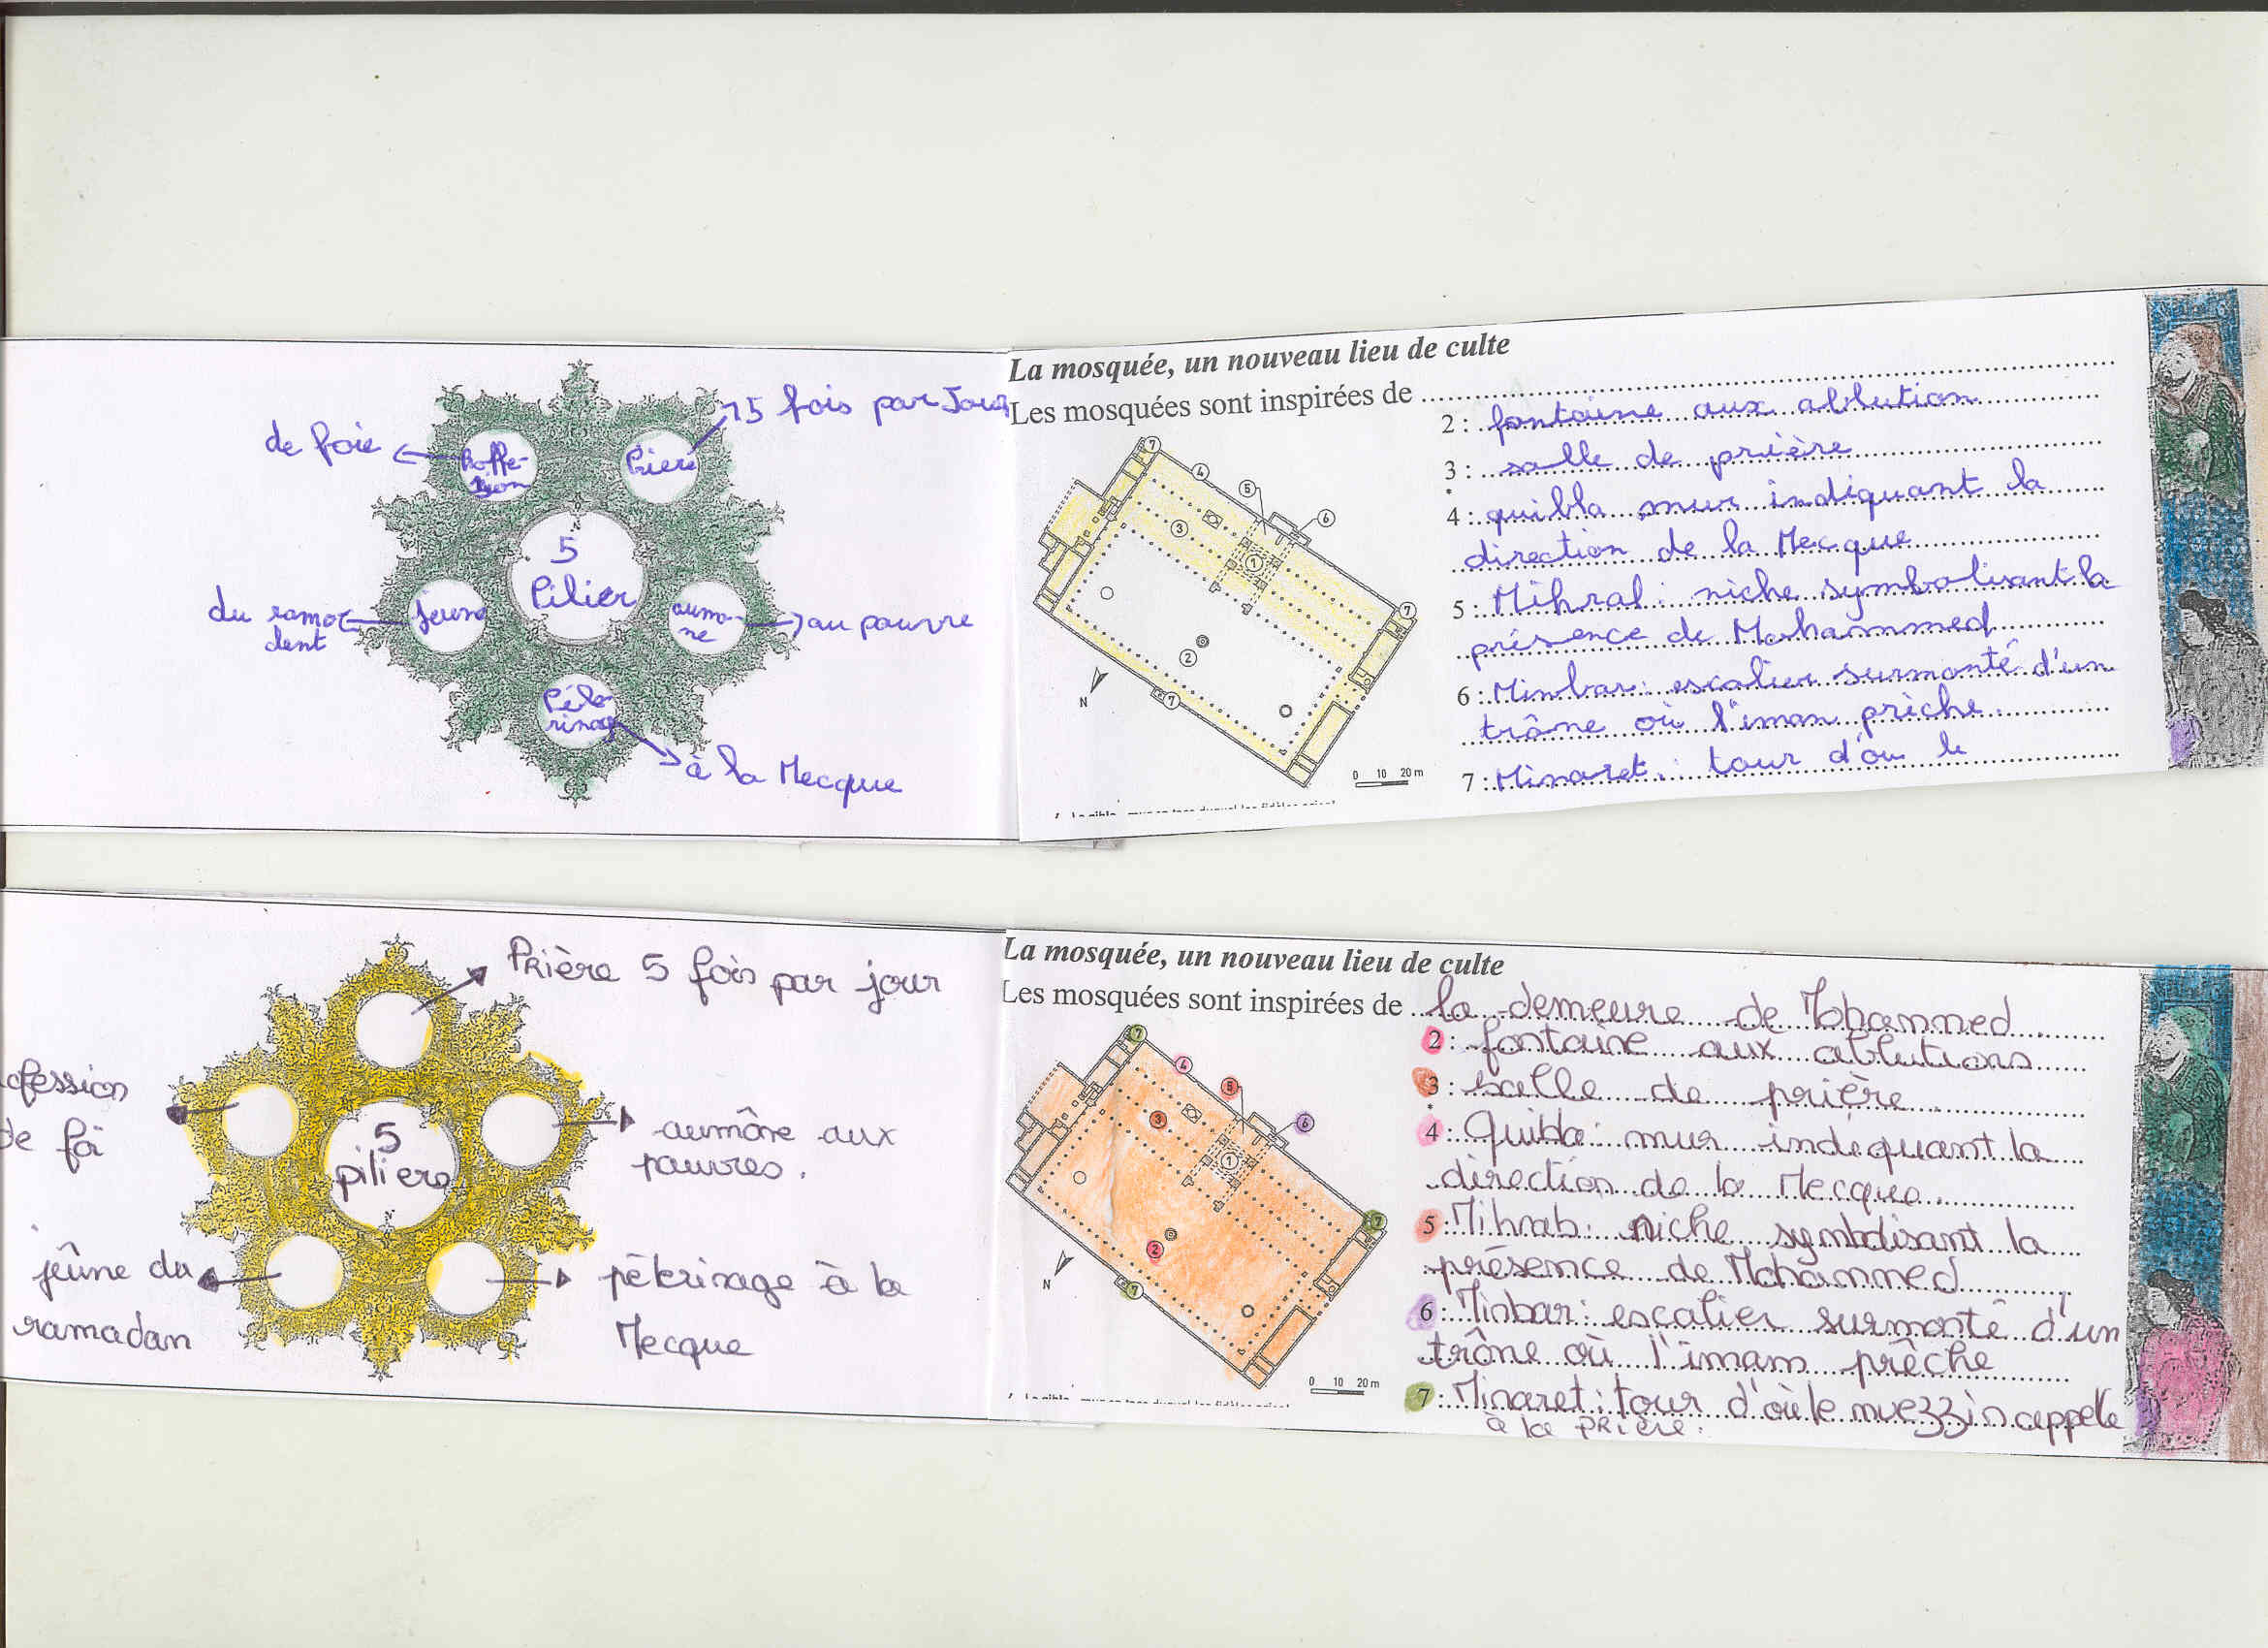 de foie
Proffe-
sion
Priere
5 fois par Jour
5
Pilier
du ramo
dent
jeune
aumo-
ne
au pauvre
Péle
rinag
à la Mecque
La mosquée, un nouveau lieu de culte
Les mosquées sont inspirées de
2 : fontaine aux ablution
3 : salle de prière
4 : quibla mur indiquant la
direction de la Mecque
5 : Mihrab : niche symbolisant la
présence de Mohammed
6 : Minbar : escalier surmonté d'un
trône où l'iman prèche.
7 : Minaret : tour d'ou le
7
4
5
6
3
1
7
2
7
N
0 10 20 m
Prière 5 fois par jour
ofession
de foi
5
piliers
aumône aux
pauvres.
jeûne du
ramadan
pèlerinage à la
Mecque
La mosquée, un nouveau lieu de culte
Les mosquées sont inspirées de la demeure de Mohammed
2 : fontaine aux ablutions
3 : salle de prière
4 : Quibla : mur indiquant la
direction de la Mecque
5 : Mihrab : niche symbolisant la
présence de Mohammed
6 : Minbar : escalier surmonté d'un
trône où l'imam prêche
7 : Minaret : tour d'où le muezzin appelle
à la prière.
7
4
5
6
3
1
7
2
7
N
0 10 20 m